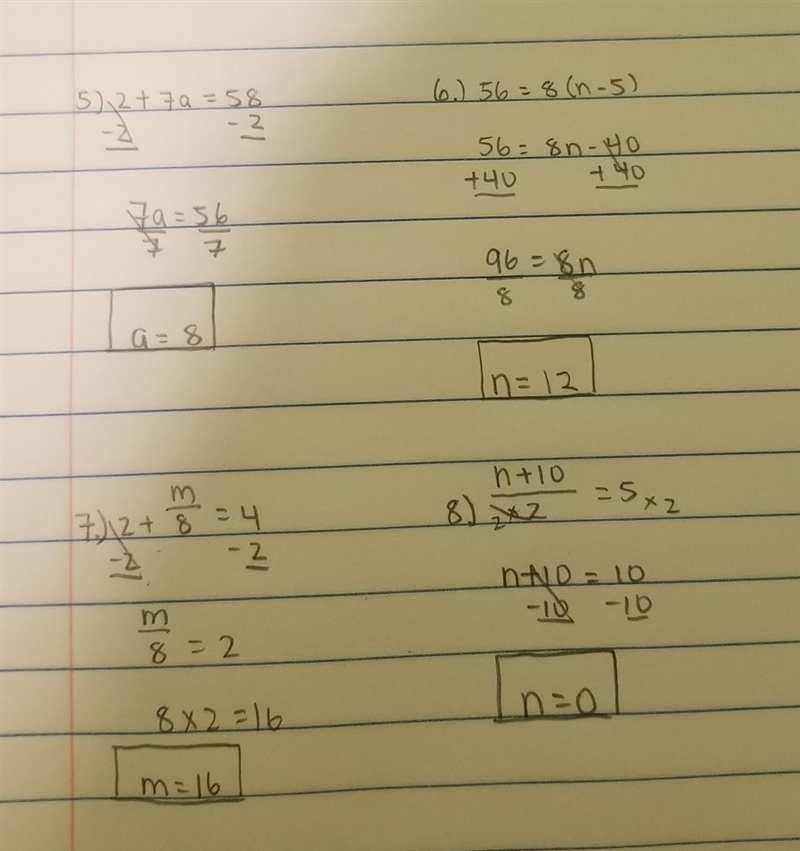 5) 2 + 7a = 58
-2 -2
7a = 56
7 7
a = 8
6.) 56 = 8(n - 5)
56 = 8n - 40
+40 +40
96 = 8n
8 8
n = 12
7.) 2 + m/8 = 4
-2 -2
m/8 = 2
8 x 2 = 16
m = 16
8) n + 10 = 5 x 2
2 x 2
n + 10 = 10
-10 -10
n = 0